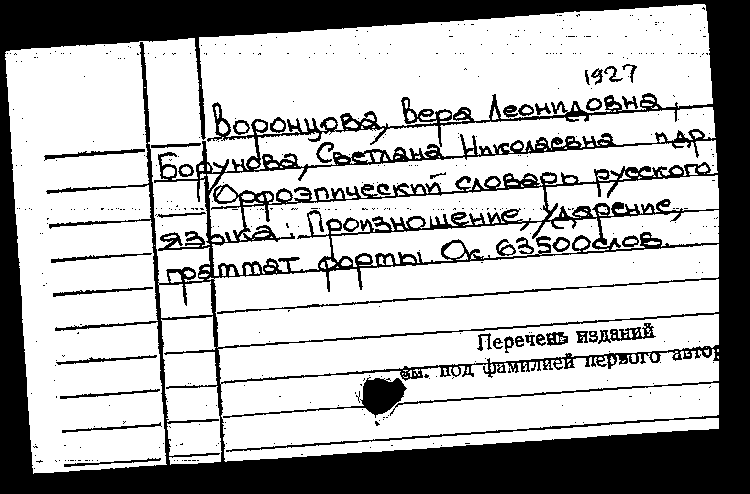 1927
Воронцова, Вера Леонидовна;
Борунова, Светлана Николаевна и др.
Орфоэпический словарь русского
языка: Произношение, ударение,
граммат. формы. Ок. 63500 слов.
Перечень изданий
см. под фамилией первого автор